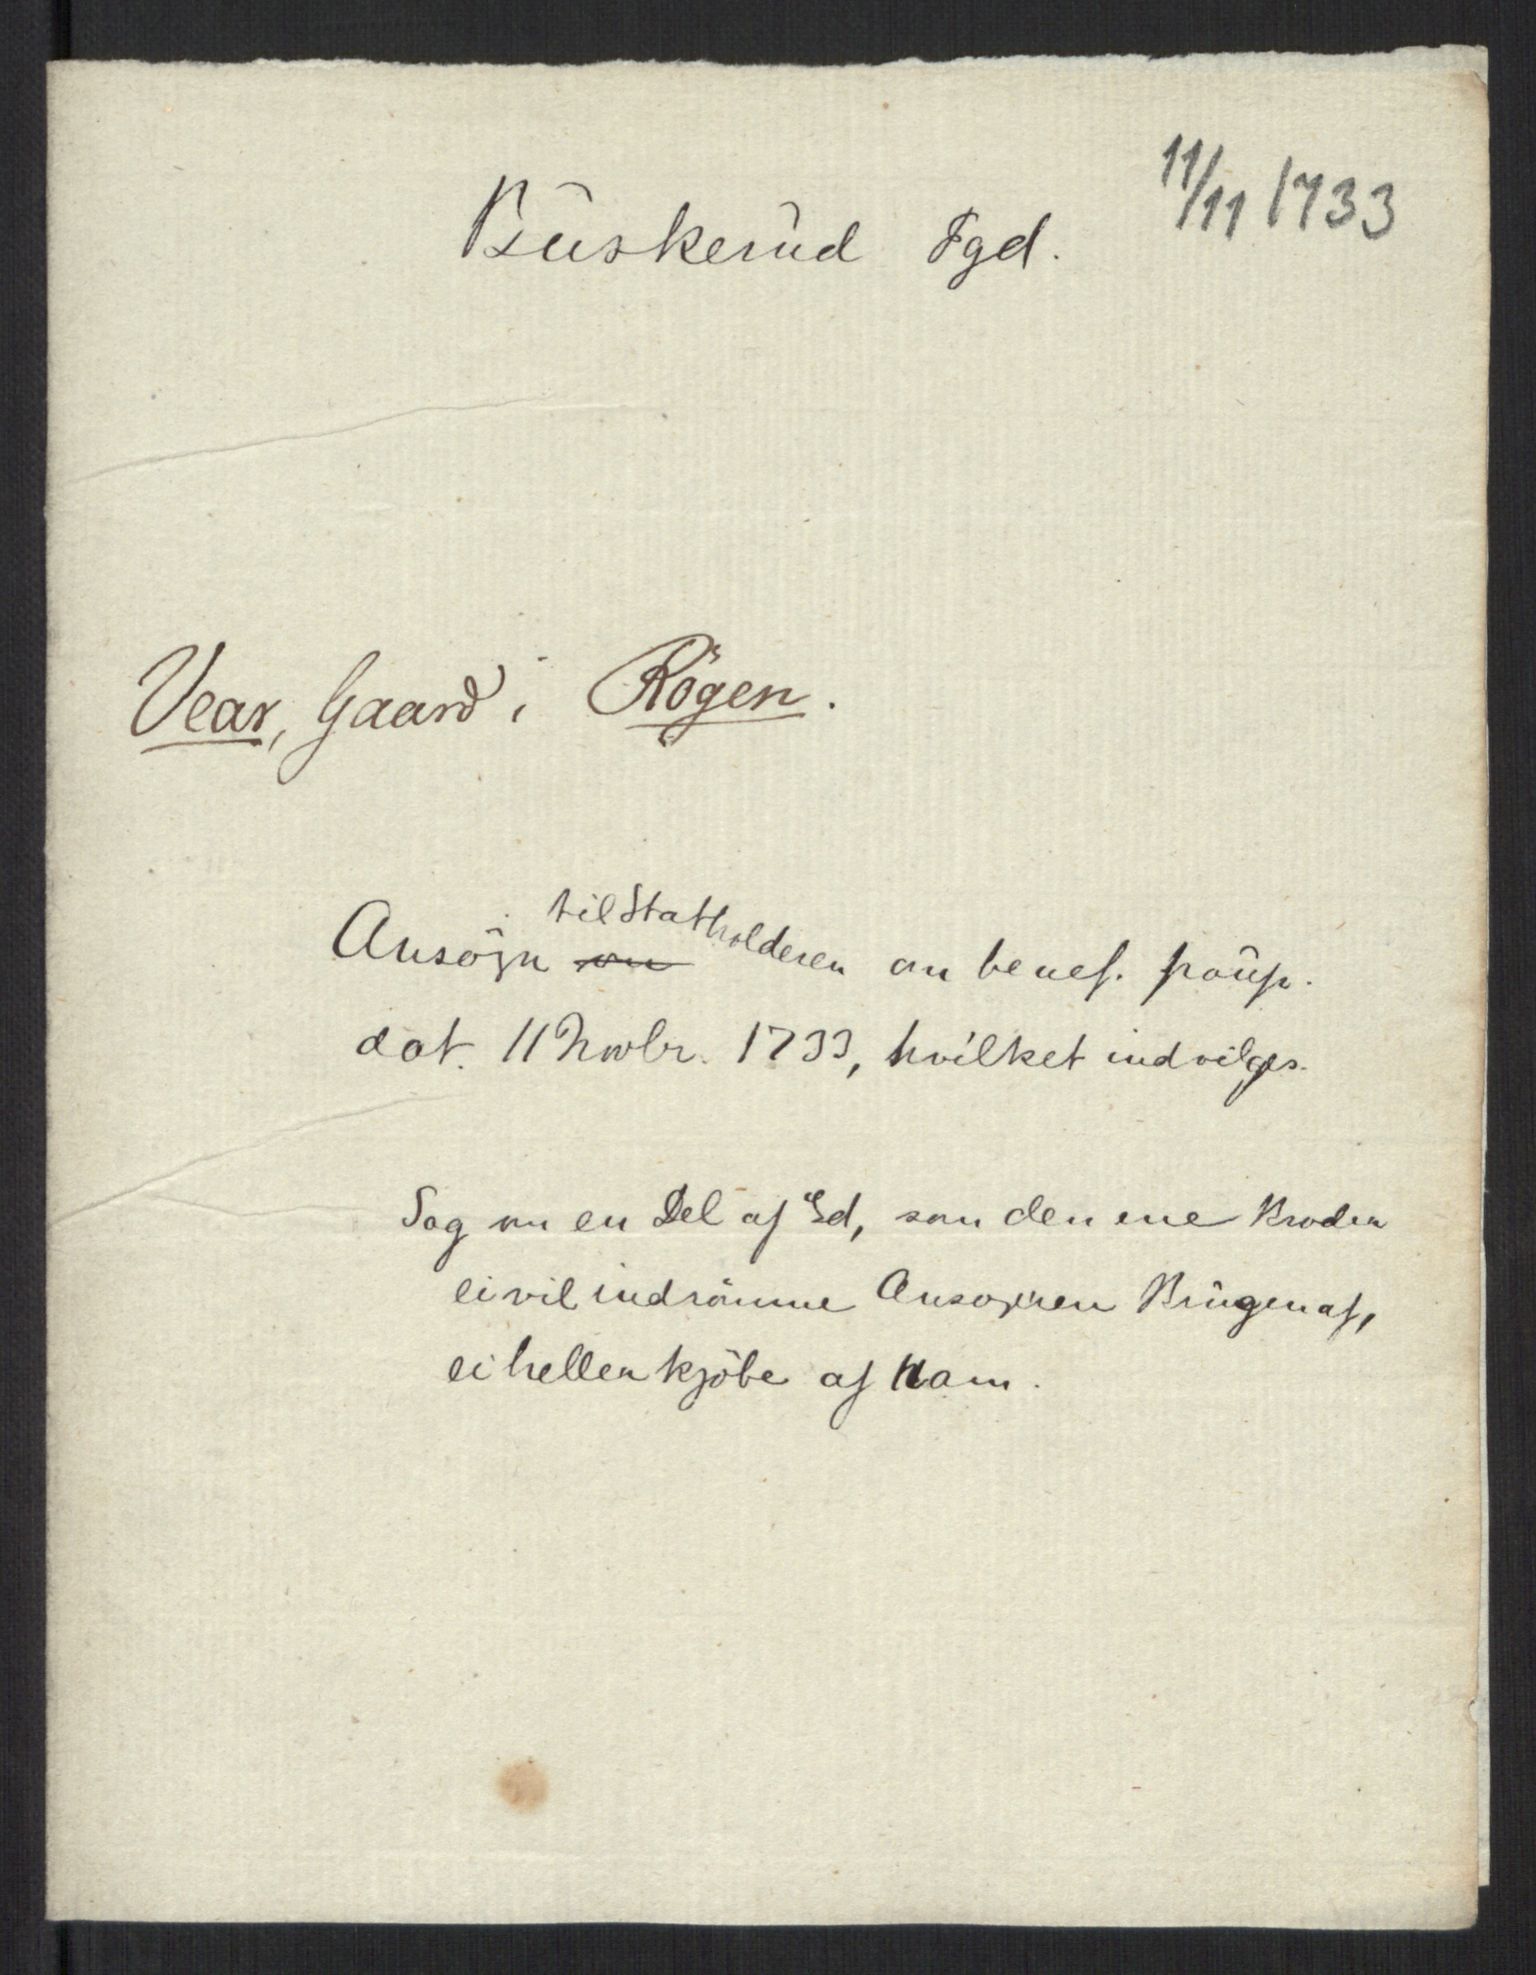 11/11 1733
Buskerud Fgd.
Vear, Gaard i Rögen.
til Statholderen
Ansögn om om benef. paup.
dat. 11 Novbr. 1733, hvilket indvilges.
Sag om en Del af Gd, som den ene Broder
ei vil indrömme Ansögeren Brugen af,
ei heller kjöbe af Ham.